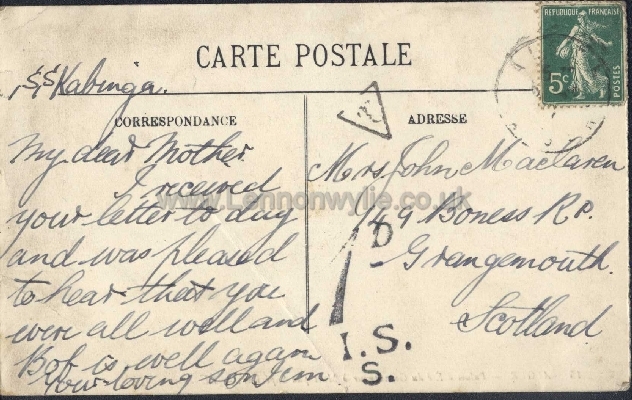 CARTE POSTALE
REPUBLIQUE FRANÇAISE
5c
POSTES
SS Kabinga.
CORRESPONDANCE
My dear Mother
I received
your letter to day
and was pleased
to hear that you
were all well and
Bob is well again
your loving son Jim
T
ADRESSE
Mrs John Maclaren
49 Boness Rd.
Grangemouth.
Scotland
1 D
I.S.
S.
www.Lennonwylie.co.uk